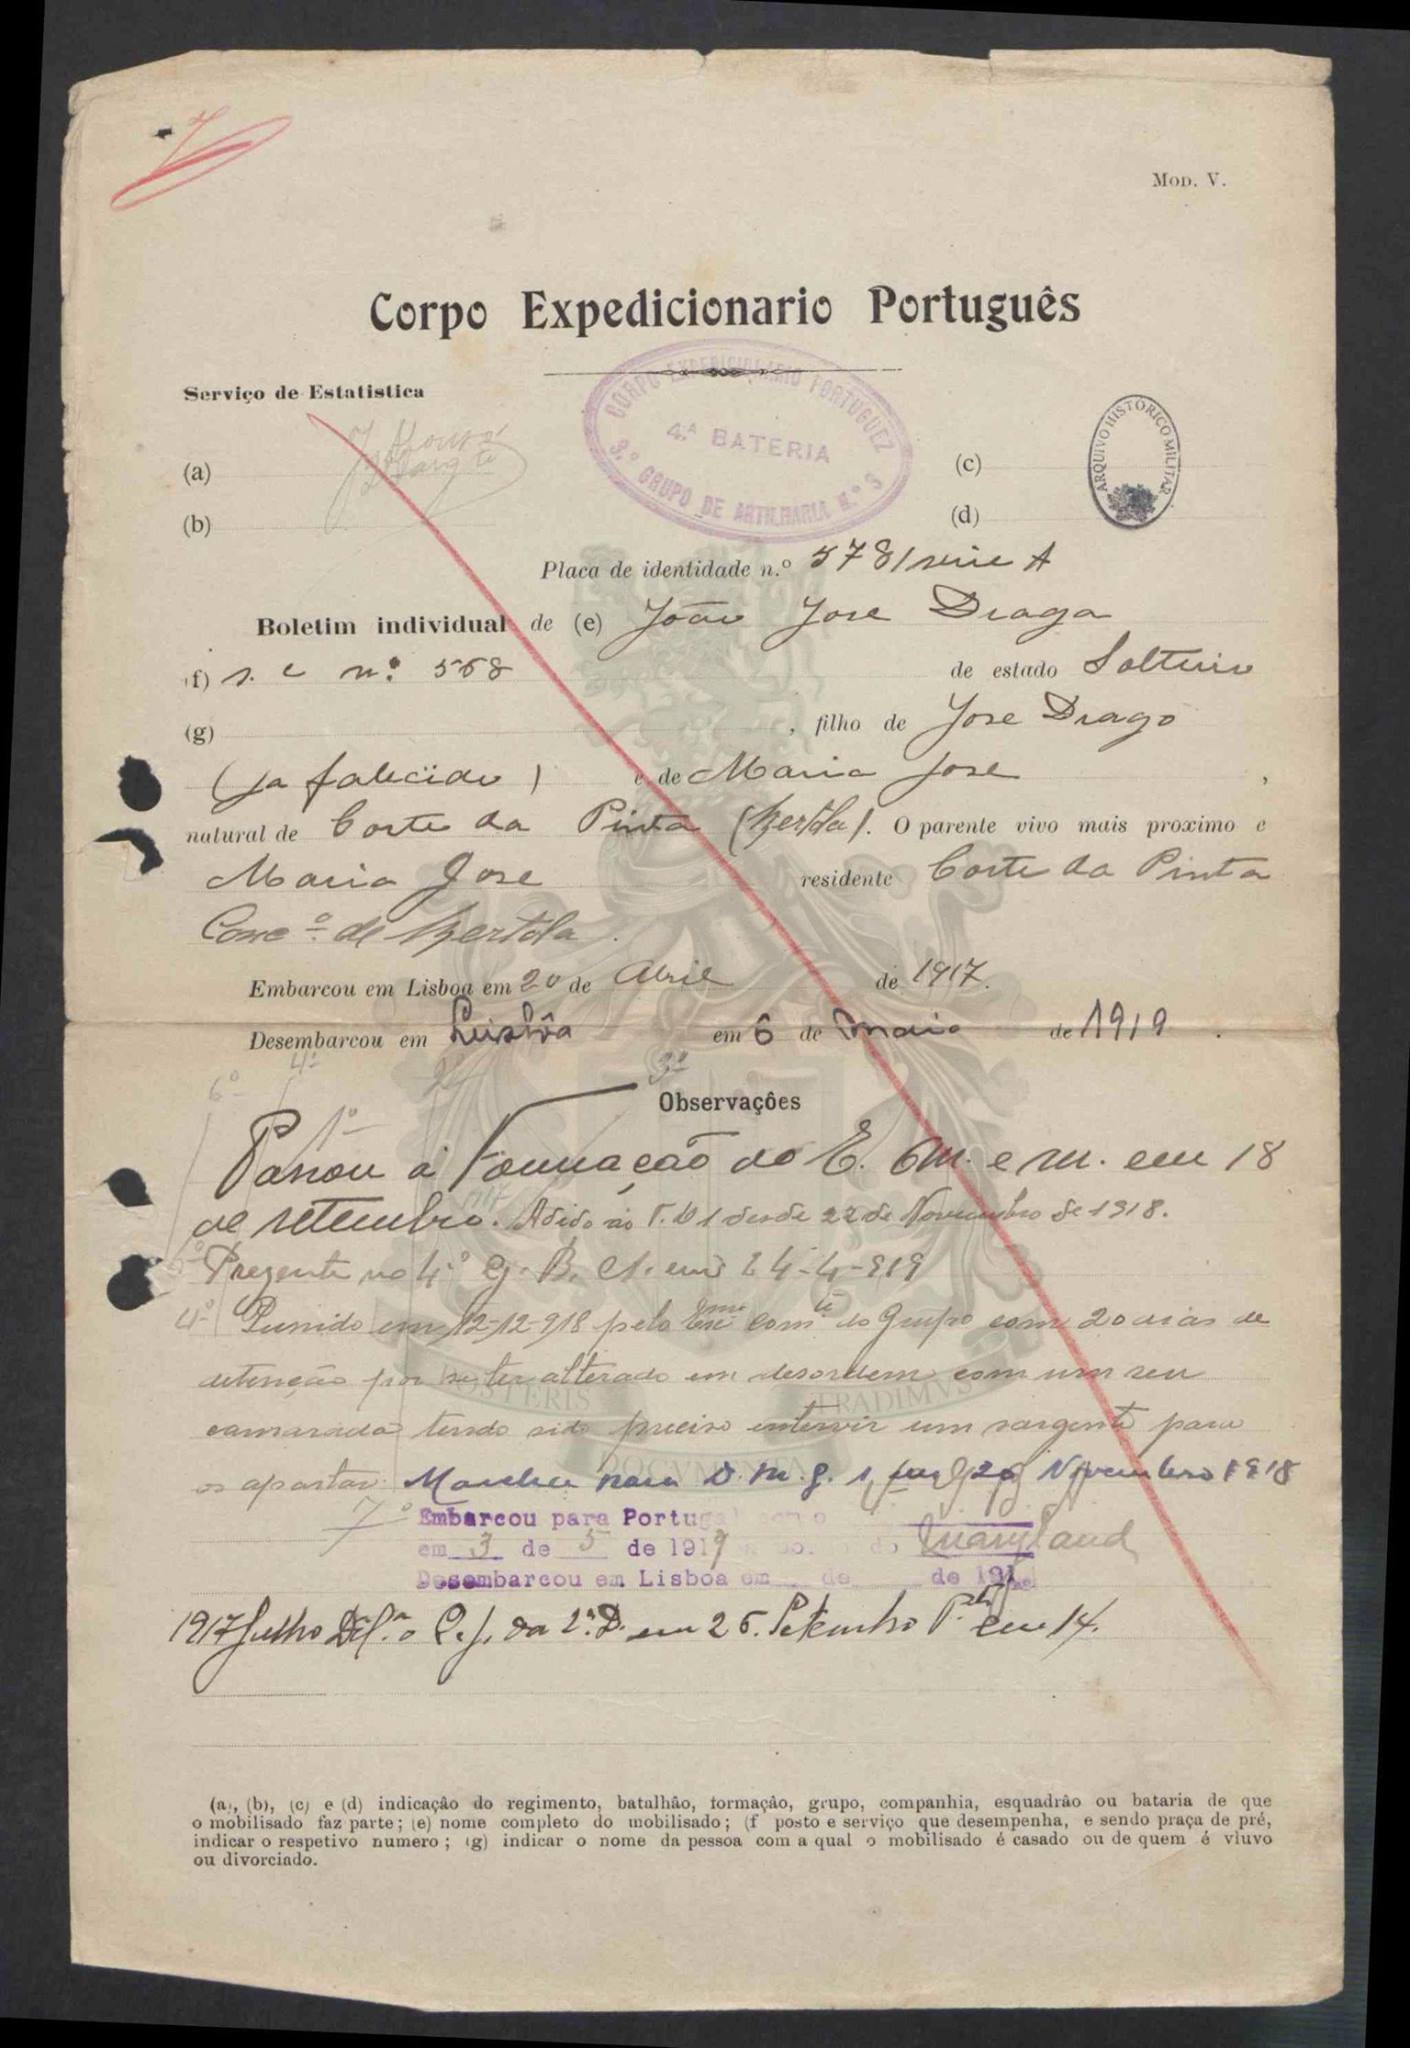 Mod. V.
Corpo Expedicionario Português
CORPO EXPEDICIONARIO PORTUGUEZ
4.ª BATERIA
3.º GRUPO DE ARTILHARIA N.º 3
Serviço de Estatistica
ARQUIVO HISTÓRICO MILITAR
(a) (c)
(b) (d)
Placa de identidade n.º 578/serie A
Boletim individual de (e) João Jose Draga
(f) s. c n.º 568 de estado Solteiro
(g) , filho de Jose Drago
(ja falecido) e de Maria Jose ,
natural de Corte da Pinta (Mertola). O parente vivo mais proximo e
Maria Jose residente Corte da Pinta
Conc.º de Mertola.
Embarcou em Lisboa em 20 de Abril de 1917.
Desembarcou em Lisbôa em 6 de maio de 1919.
6º 4º 3º
Observações
1º
Passou á Formação do E. M. e m. em 18
de setembro. Adido ao D 1 desde 22 de Novembro de 1918.
Prezente no 4.º G. B. A. em 24-4-919
4º Punido em 12-12-918 pelo Exmo Comte do Grupo com 20 dias de
detenção por se ter alterado em desordem com um seu
camarada tendo sido preciso intervir um sargento para
os apartar. Marchou para D. m. g. 1 20 Novembro 1918
POSTERIS TRADIMVS
DOCVMENTA
7º Embarcou para Portugal
em 3 de 5 de 1919 do Maryland
Desembarcou em Lisboa em de de 191
1917 Julho da 2.ª D. em 26. Setembro em 14.
(a), (b), (c) e (d) indicação do regimento, batalhão, formação, grupo, companhia, esquadrão ou bataria de que
o mobilisado faz parte; (e) nome completo do mobilisado; (f posto e serviço que desempenha, e sendo praça de pré,
indicar o respetivo numero; (g) indicar o nome da pessoa com a qual o mobilisado é casado ou de quem é viuvo
ou divorciado.